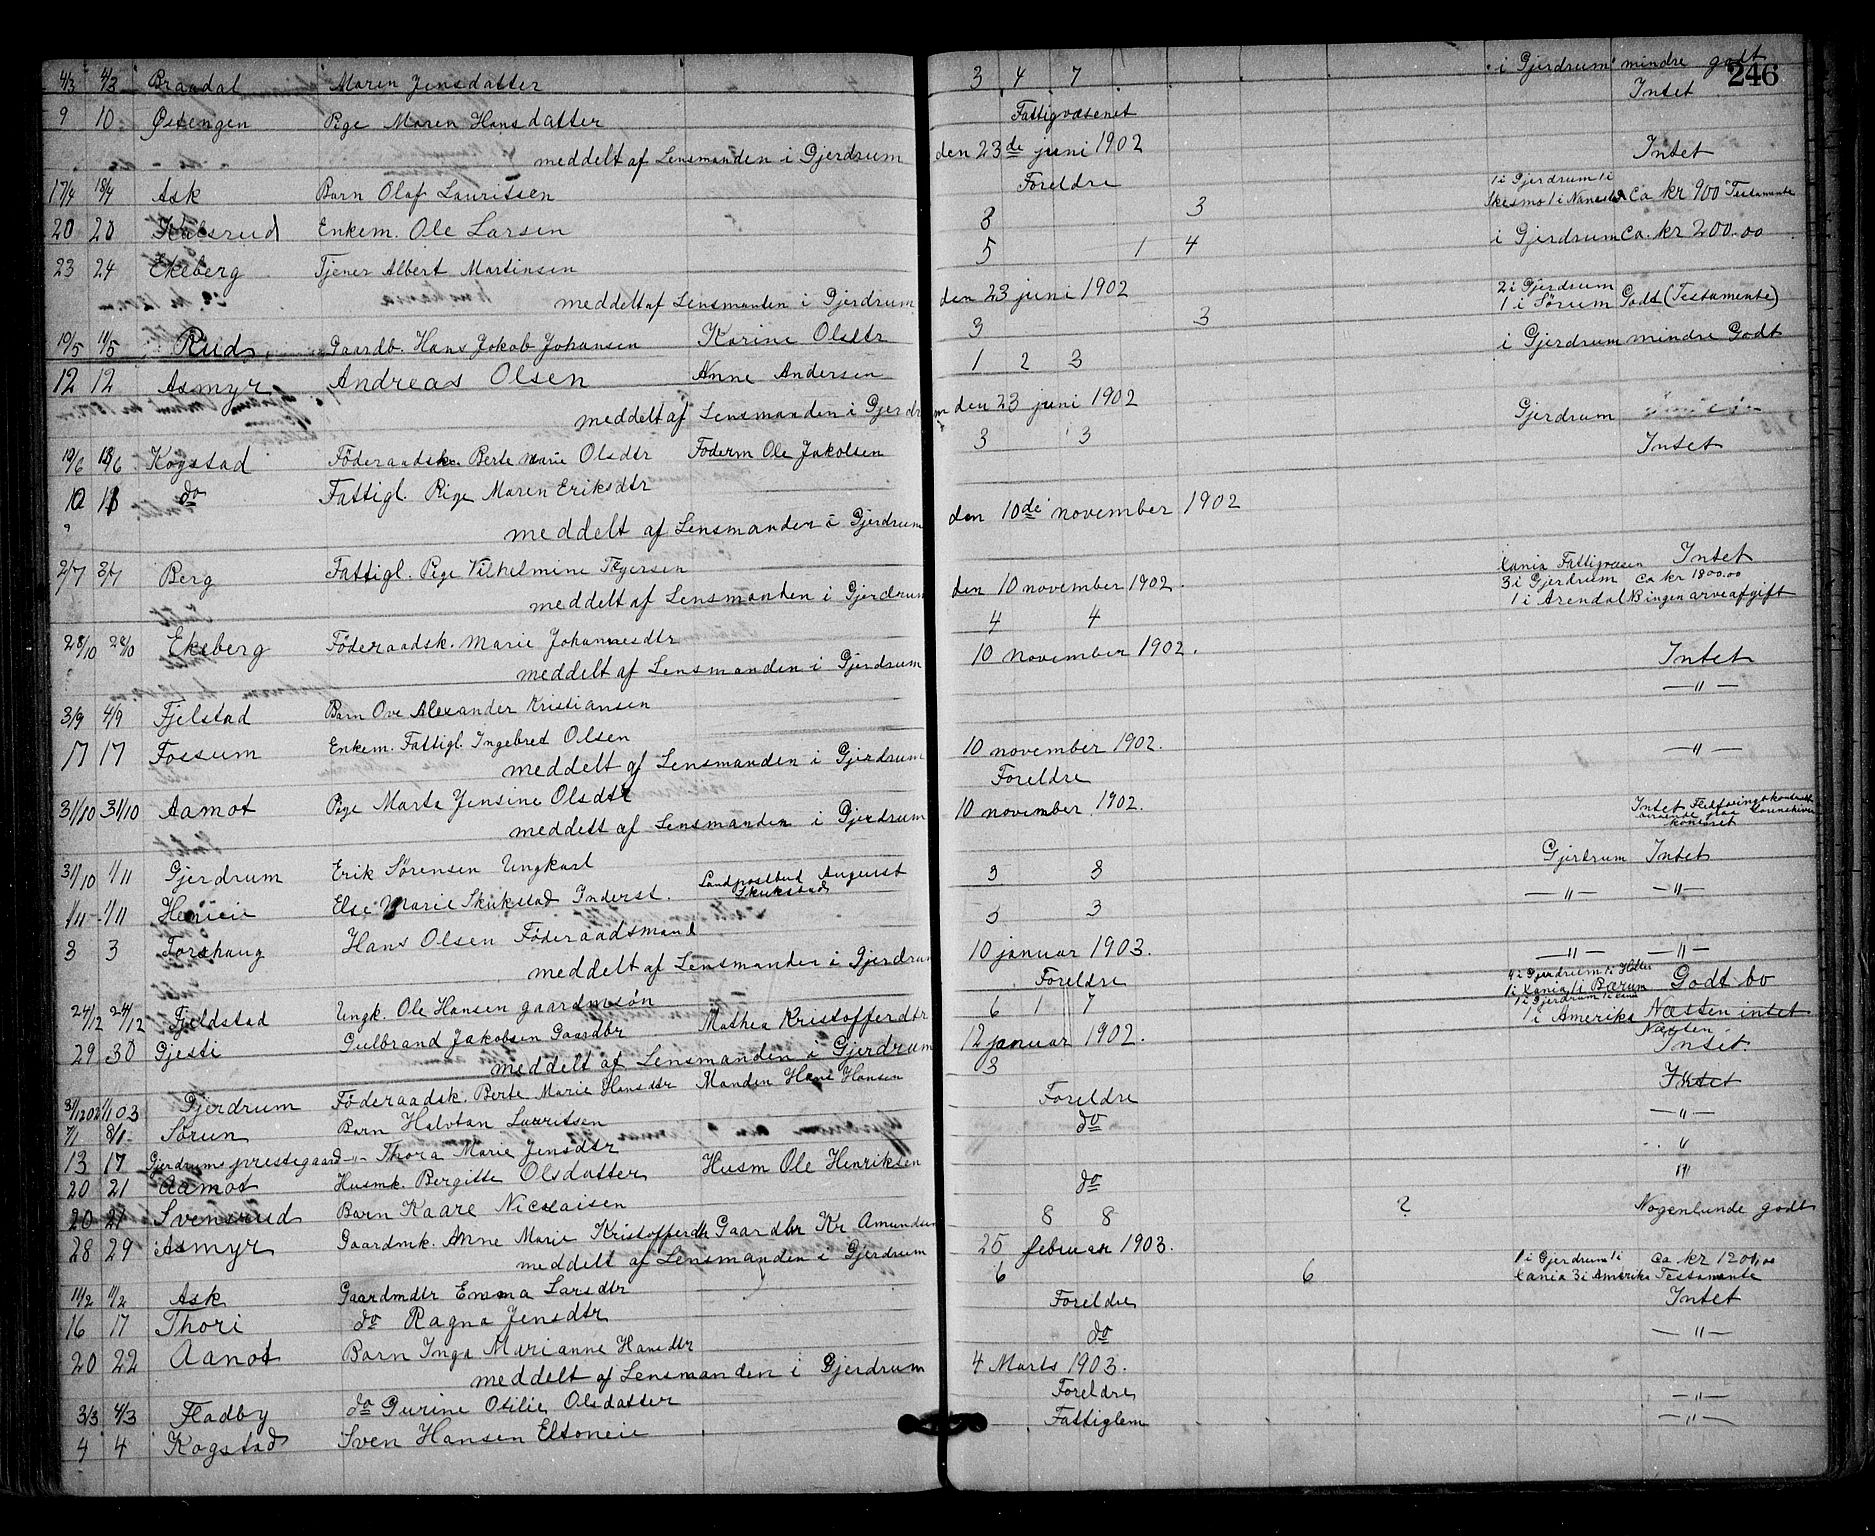 246
4/3 4/3 Braadal Maren Jensdatter 3 4 7 i Gjerdrum mindre godt
9 10 Østengen Pige Maren Hansdatter Fattigvæsenet Intet
meddelt af Lensmanden i Gjerdrum den 23de juni 1902
17/4 18/4 Ask Barn Olaf Lauritsen Foreldre Intet
20 20 Kulsrud Enkem. Ole Larsen 3 3 1 i Gjerdrum 1 i Skesmo 1 i Nanestad Ca kr 900 Testamente
23 24 Ekeberg Tjener Albert Martinsen 5 1 4 i Gjerdrum Ca. kr 200.00
meddelt af Lensmanden i Gjerdrum den 23 juni 1902
10/5 11/5 Rud Gaardb. Hans Jakob Johansen Karine Olsdtr 3 3 2 i Gjerdrum 1 i Sørum Godt (Testamente)
12 12 Asmyr Andreas Olsen Anne Andersen 1 2 3 i Gjerdrum mindre Godt
meddelt af Lensmanden i Gjerdrum den 23 juni 1902
Kogstad Föderaadsk. Berte Marie Olsdtr Föderm Ole Jakobsen 3 3 Gjerdrum
10 11 do Fattigl. Pige Maren Eriksdtr Intet
meddelt af Lensmanden i Gjerdrum den 10de november 1902
2/7 3/7 Berg Fattigl. Pige Vilhelmine Tygersen Xania Fattigvæsen Intet
meddelt af Lensmanden i Gjerdrum den 10 november 1902.
28/10 Ekeberg Föderaadsk. Marie Johannesdtr 4 4 3 i Gjerdrum 1 i Arendal ca kr 1800.00 NB ingen arveafgift
meddelt af Lensmanden i Gjerdrum 10 november 1902.
3/9 4/9 Fjelstad Barn Ove Alexander Kristiansen Intet
17 17 Fossum Enkem. Fattigl. Ingebred Olsen — " —
meddelt af Lensmanden i Gjerdrum 10 november 1902.
31/10 31/10 Aamot Pige Marta Jensine Olsdtr Foreldre — " —
meddelt af Lensmanden i Gjerdrum 10 november 1902.
31/10 1/11 Gjerdrum Erik Sørensen Ungkarl Intet
1/11 1/11 Henieie Else Marie Skukstad Inderst. Landpostbud August Skukstad 3 3 Gjerdrum Intet
3 3 Forshaug Hans Olsen Föderaadsmand 3 3 — " — — " —
meddelt af Lensmanden i Gjerdrum 10 januar 1903.
24/12 24/12 Fjeldstad Ungk. Ole Hansen gaardmsøn Foreldre — " — — " —
29 30 Gjesti Gulbrand Jakobsen Gaardbr Mathea Kristofferdtr 6 1 7 4 i Gjerdrum 1 i Xania 1 i Bærum Godt bo
meddelt af Lensmanden i Gjerdrum 12 januar 1902.
Gjerdrum Föderaadsk. Berte Marie Hansdtr Manden Hans Hansen 3 1 i Gjerdrum 1 i Amerika Næsten intet
7/1 8/1 Sørun Barn Halvtan Lauritsen Foreldre Næsten Intet.
13 17 Gjerdrums prestegaard — " — Thora Marie Jensdtr do
20 21 Aamot Husmk. Bergitte Olsdatter Husm Ole Henriksen — " —
20 21 Svensrud Barn Kaare Nicolaisen do "
28 29 Asmyr Gaardmk. Anne Marie Kristofferdtr Gaardbr Kr Amundsen 8 8 ? Nogenlunde godt
meddelt af Lensmanden i Gjerdrum 25 februar 1903.
11/2 11/2 Ask Gaardmdtr Emma Larsdtr 6 6 1 i Gjerdrum 1 i Xania 3 i Amerika ca kr 1200,00 Testamente
16 17 Thori do Ragna Jensdtr Foreldre Intet
20 22 Aanot Barn Inga Marianne Hansdtr do — " —
meddelt af Lensmanden i Gjerdrum 4 Marts 1903.
3/3 4/3 Fladby do Gurine Otilie Olsdatter Foreldre — " —
4 4 Kogstad Sven Hansen Eltoneie Fattiglem — " —